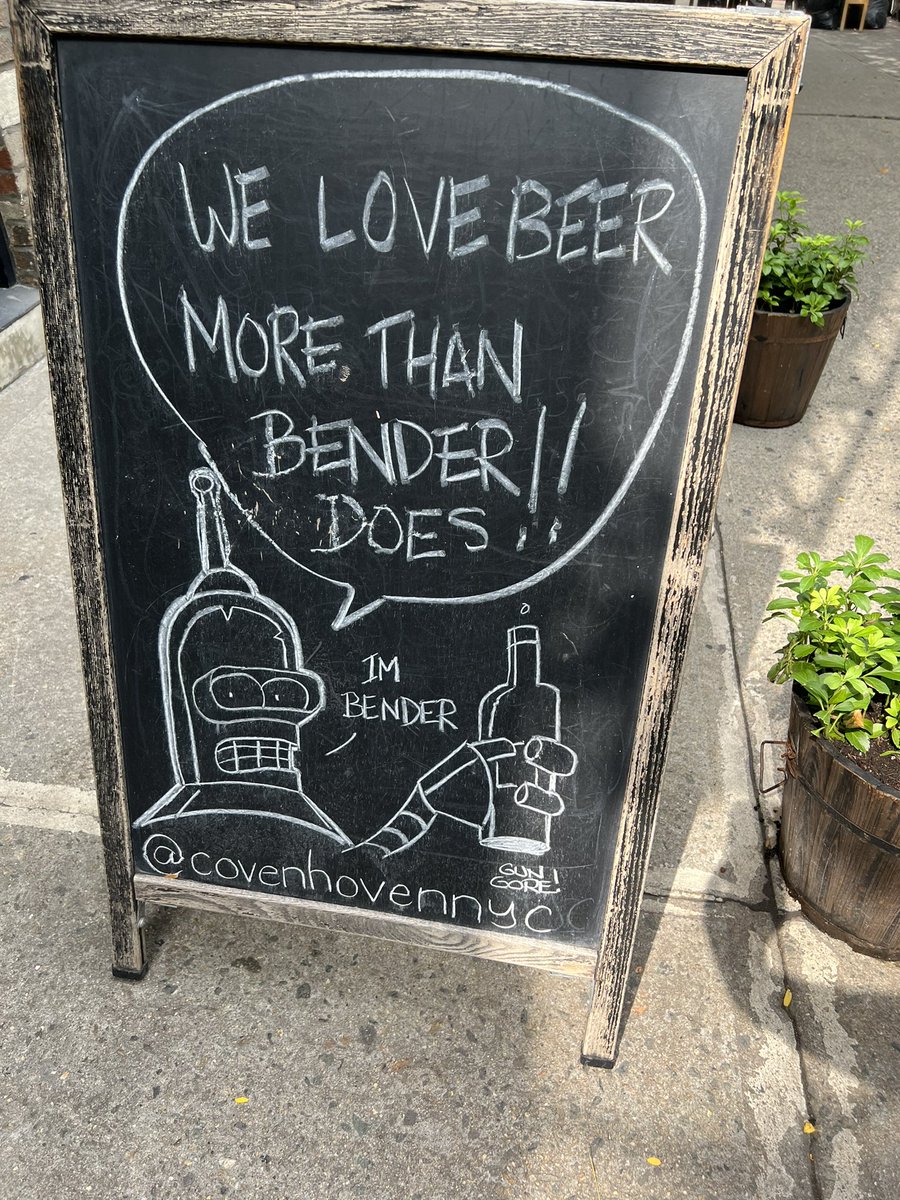 WE LOVE BEER
MORE THAN
BENDER!!
DOES!!
IM
BENDER
GUN!
GORE!
@covenhovennyc